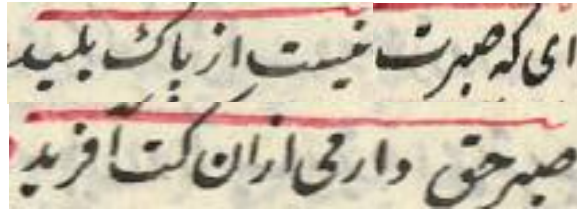 ای که صبرت نیست از پاک پلید
صبر حق داری از ان کت آفرید